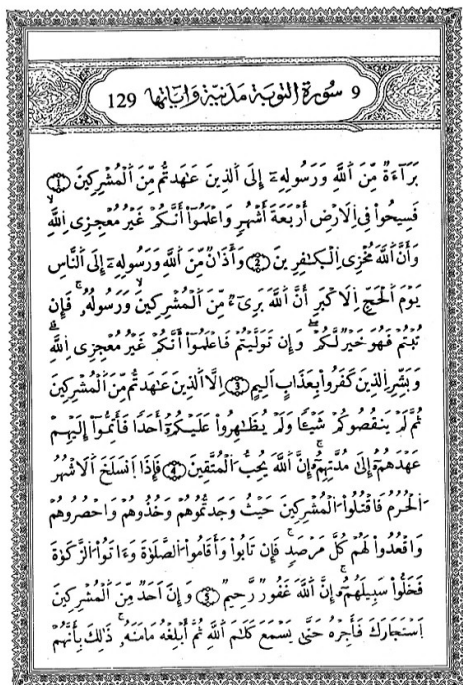 9 سُورَةُ التَّوْبَةِ مَدَنِيَّةٌ وَآيَاتُهَا 129
بَرَآءَةٌ مِّنَ اَ۬للَّهِ وَرَسُولِهِۦٓ إِلَى اَ۬لذِينَ عَٰهَدتُّم مِّنَ اَ۬لْمُشْرِكِينَ ١
فَسِيحُواْ فِى اِ۬لَارْضِ أَرْبَعَةَ أَشْهُرٍ وَاعْلَمُوٓاْ أَنَّكُمْ غَيْرُ مُعْجِزِى اِ۬للَّهِ
وَأَنَّ اَ۬للَّهَ مُخْزِى اِ۬لْكٰ۪فِرِينَ ٢ وَأَذَٰنٌ مِّنَ اَ۬للَّهِ وَرَسُولِهِۦٓ إِلَى اَ۬لنَّاسِ
يَوْمَ اَ۬لْحَجِّ اِ۬لَاكْبَرِ أَنَّ اَ۬للَّهَ بَرِىٓءٌ مِّنَ اَ۬لْمُشْرِكِينَ وَرَسُولُهُۥ فَإِن
تُبْتُمْ فَهُوَ خَيْرٌ لَّكُمْ وَإِن تَوَلَّيْتُمْ فَاعْلَمُوٓاْ أَنَّكُمْ غَيْرُ مُعْجِزِى اِ۬للَّهِ
وَبَشِّرِ اِ۬لذِينَ كَفَرُواْ بِعَذَابٍ اَلِيمٍ ٣ اِلَّا اَ۬لذِينَ عَٰهَدتُّم مِّنَ اَ۬لْمُشْرِكِينَ
ثُمَّ لَمْ يَنقُصُوكُمْ شَيْـًٔا وَلَمْ يُظَٰهِرُواْ عَلَيْكُمُۥٓ أَحَدًا فَأَتِمُّوٓاْ إِلَيْهِمْ
عَهْدَهُمُۥٓ إِلَىٰ مُدَّتِهِمُۥٓ إِنَّ اَ۬للَّهَ يُحِبُّ اُ۬لْمُتَّقِينَ ٤ فَإِذَا اَ۪نسَلَخَ اَ۬لَاشْهُرُ
اُ۬لْحُرُمُ فَاقْتُلُواْ اُ۬لْمُشْرِكِينَ حَيْثُ وَجَدتُّمُوهُمْ وَخُذُوهُمْ وَاحْصُرُوهُمْ
وَاقْعُدُواْ لَهُمْ كُلَّ مَرْصَدٍ فَإِن تَابُواْ وَأَقَامُواْ اُ۬لصَّلَوٰةَ وَءَاتَوُاْ اُ۬لزَّكَوٰةَ
فَخَلُّواْ سَبِيلَهُمُۥٓ إِنَّ اَ۬للَّهَ غَفُورٌ رَّحِيمٌ ٥ وَإِنَ اَحَدٌ مِّنَ اَ۬لْمُشْرِكِينَ
اَ۪سْتَجَارَكَ فَأَجِرْهُ حَتَّىٰ يَسْمَعَ كَلَٰمَ اَ۬للَّهِ ثُمَّ أَبْلِغْهُ مَامَنَهُۥ ذَٰلِكَ بِأَنَّهُمْ